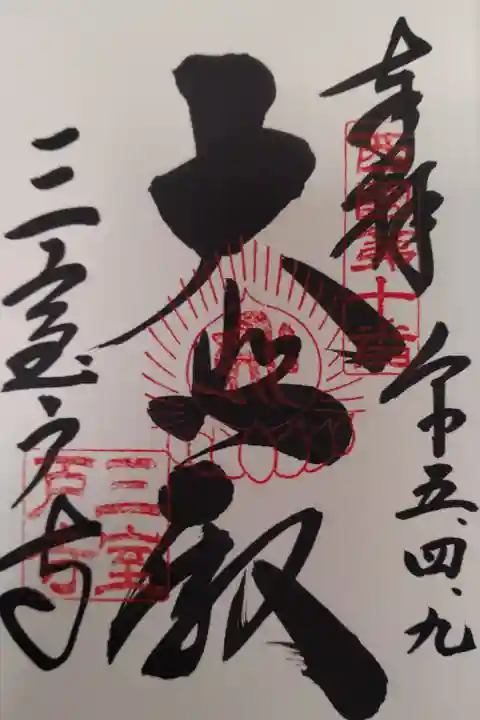 奉拝
西国第十番
令和五、四、九
大悲殿
三室戸寺
三室
戸寺